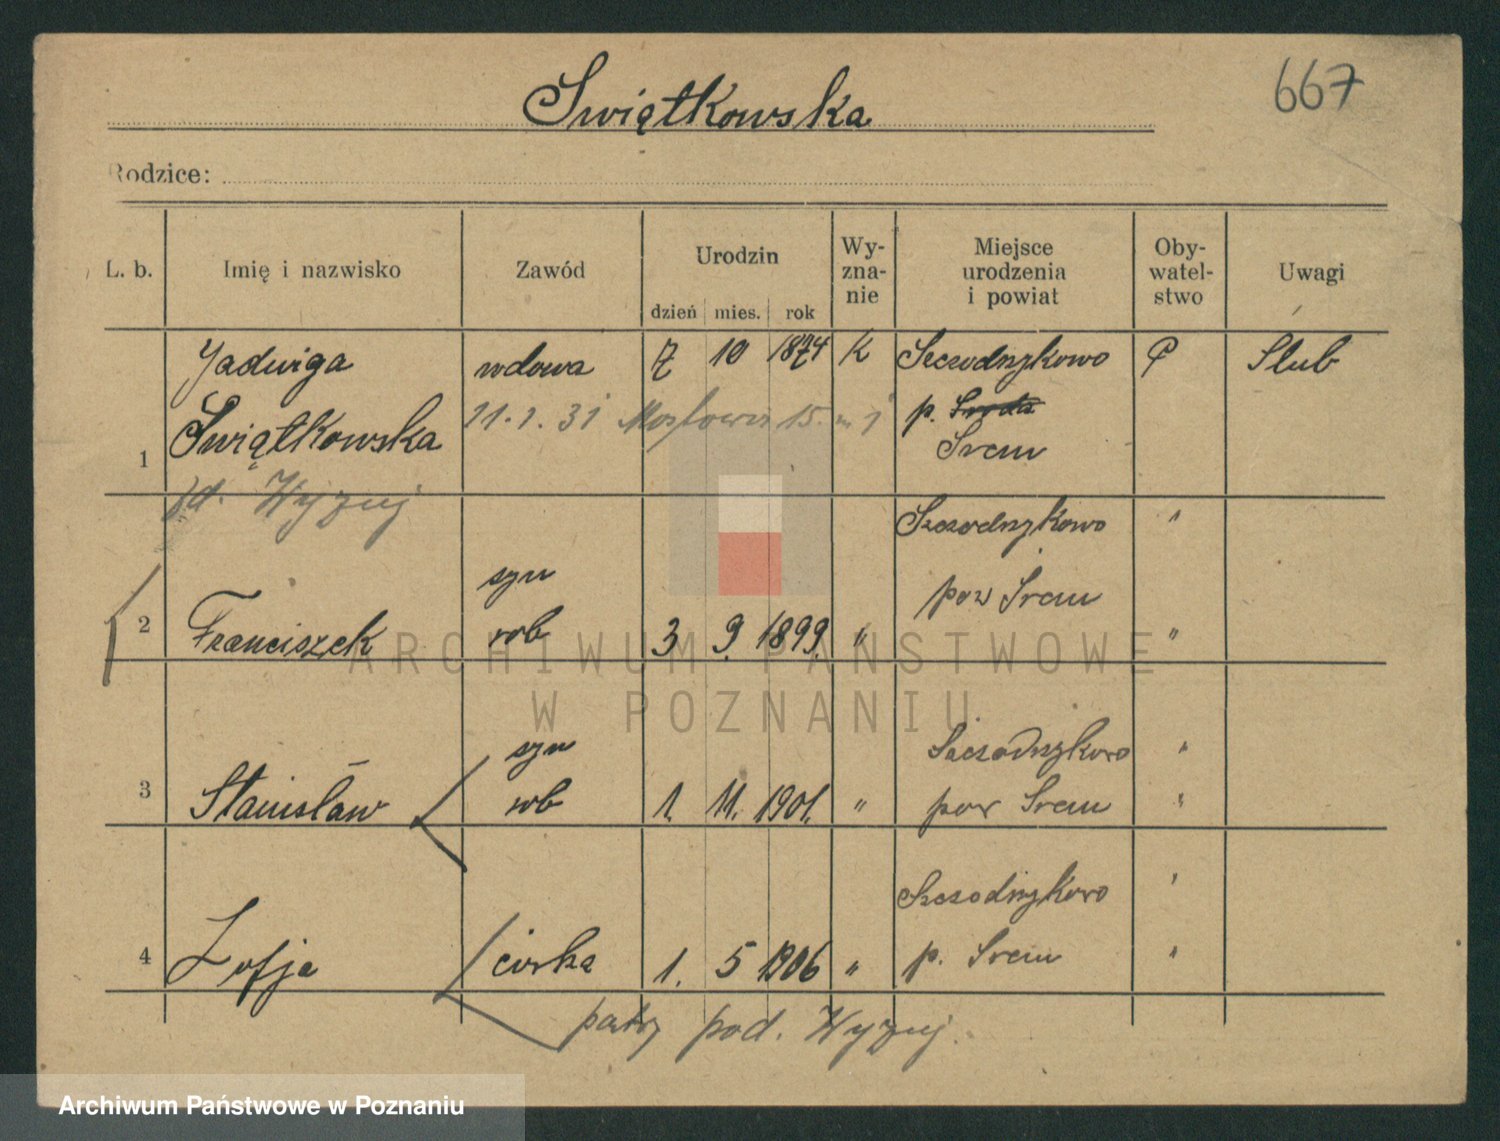 Świątkowska
667
Rodzice:
L. b. Imię i nazwisko Zawód Urodzin dzień mies. rok Wy-zna-nie Miejsce urodzenia i powiat Oby-watel-stwo Uwagi
Jadwiga wdowa 7 10 1874 K Szczodrzykowo P Slub
11.1.31 15. m 1 p. Sroda
1 Świątkowska Srem
Wyzuj
Szczodrzykowo "
syn pow Srem
2 Franciszek rob 3 9. 1899. " "
ARCHIWUM PAŃSTWOWE
W POZNANIU
syn Szczodrzykowo "
3 Stanisław rob 1. 11. 1901. " pow Srem "
Szczodrzykowo "
4 Zofja córka 1. 5 1906 " p. Srem "
patrz pod. Wyzuj.
Archiwum Państwowe w Poznaniu